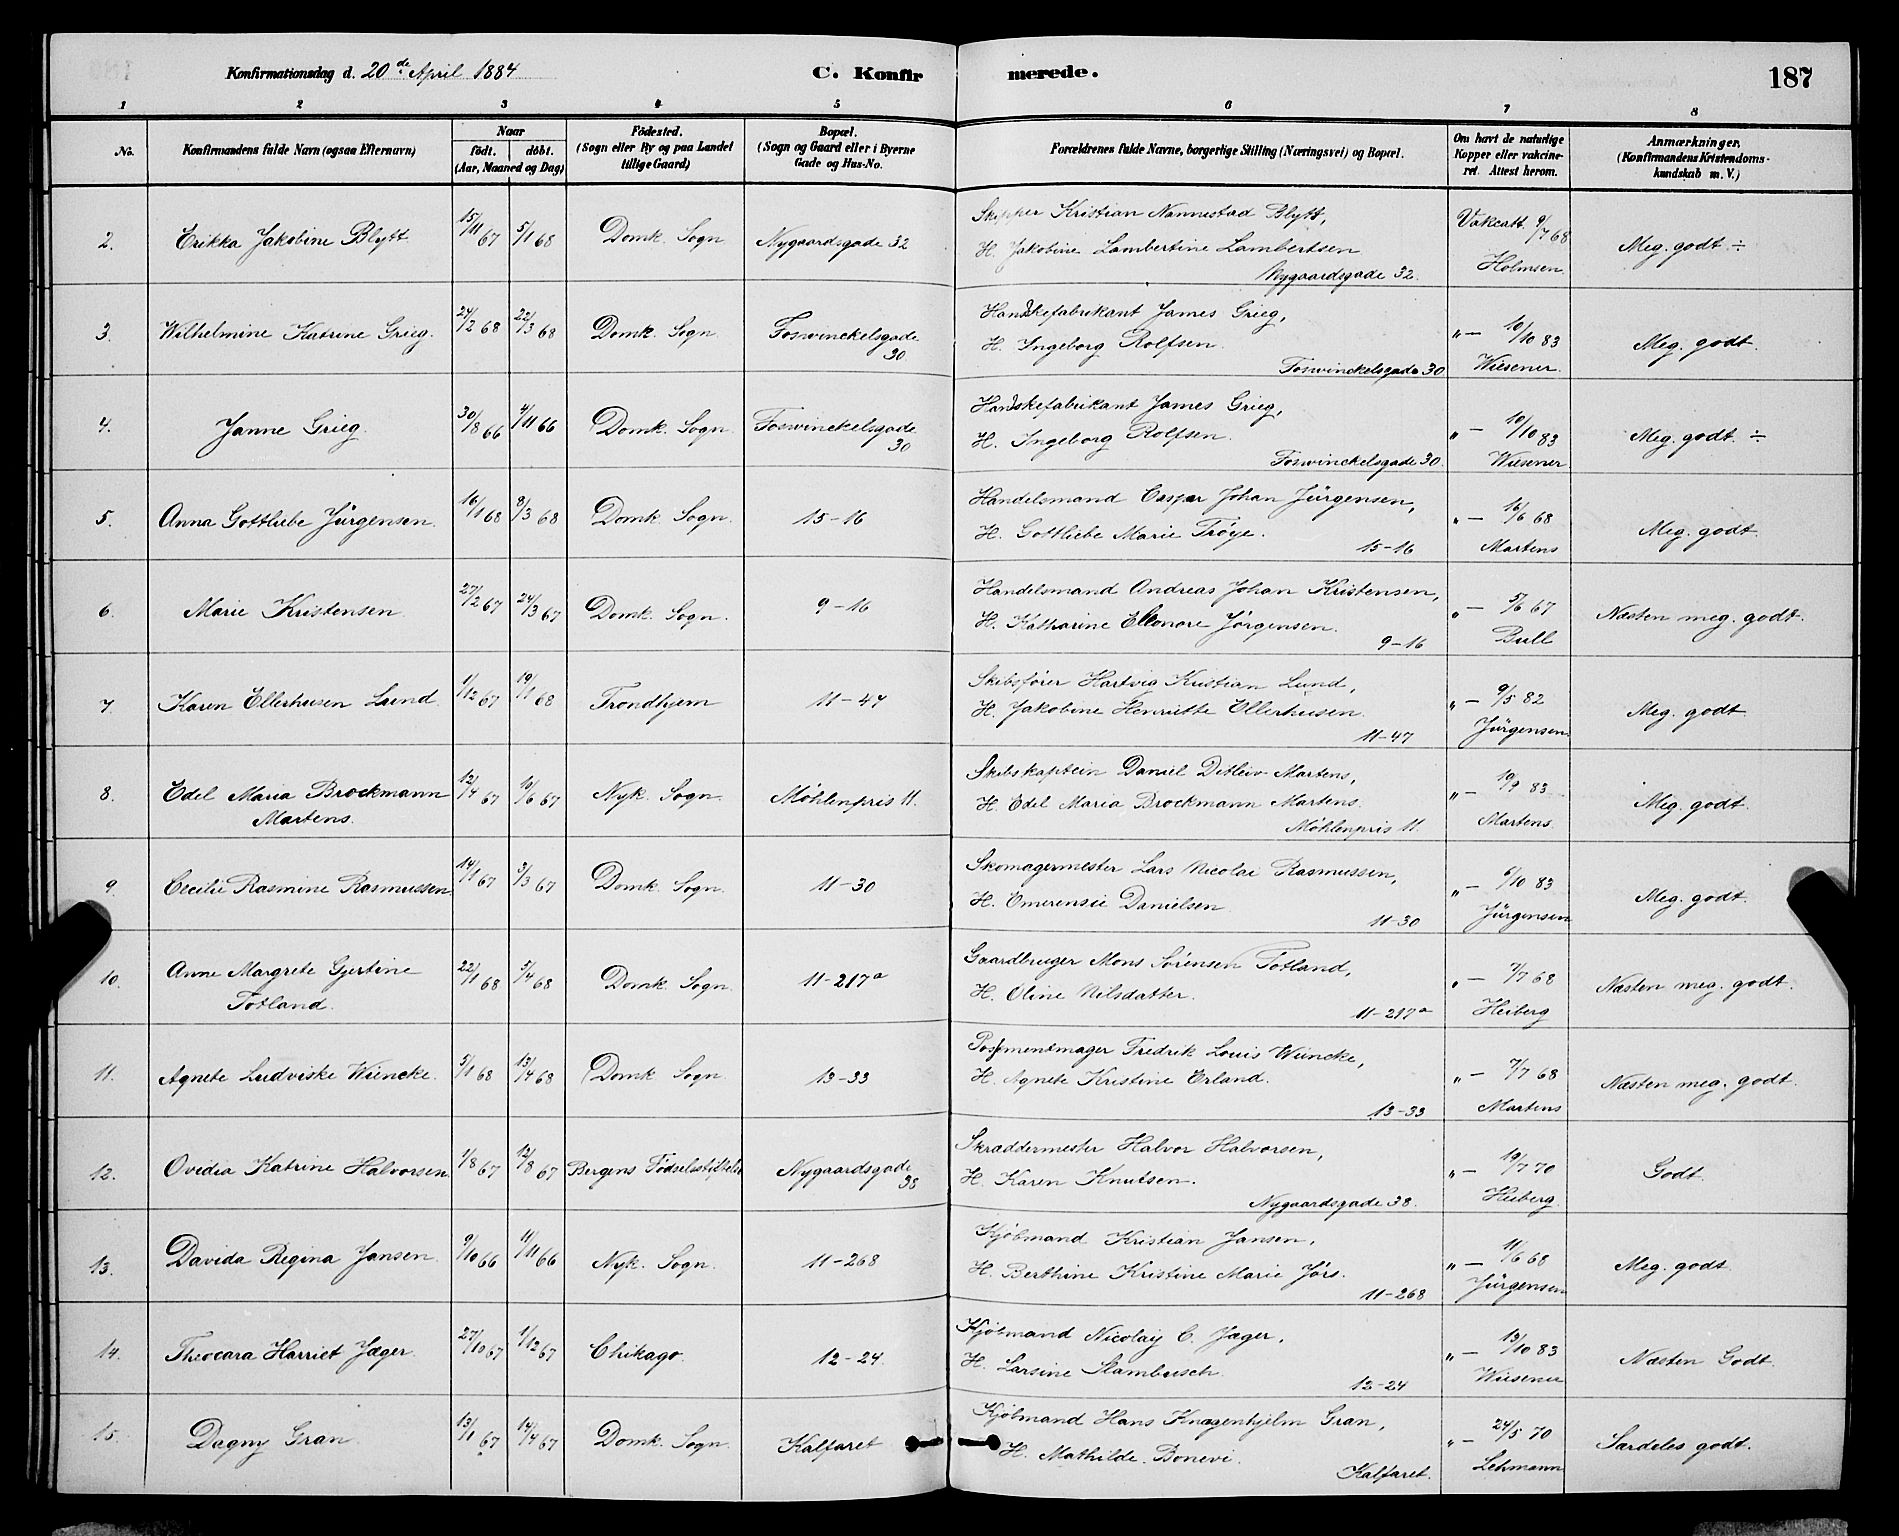 Konfirmationsdag d. 20de April 1884 C. Konfirmerede. 187
1 2 3 4 5 6 7 8
No. Konfirmandens fulde Navn (ogsaa Efternavn) Naar födt. döbt. (Aar, Maaned og Dag) Födested. (Sogn eller By og paa Landet tillige Gaard) Bopæl. (Sogn og Gaard eller i Byerne Gade og Hus-No. Forældrenes fulde Navne, borgerlige Stilling (Næringsvei) og Bopæl. Om havt de naturlige Kopper eller vakcineret. Attest herom. Anmærkninger. (Konfirmandens Kristendomskundskab m. V.)
2. Erikka Jakobine Blytt 15/11 67 5/1 68 Domk. Sogn Nygaardsgade 32 Skipper Kristian Nannestad Blytt, Vakcatt. 9/7 68 Meg. godt ÷
H. Jakobine Lambertine Lambertsen Holmsen
Nygaardsgade 32.
3. Wilhelmine Katrine Grieg. 24/2 68 22/3 68 Domk. Sogn Foswinckelsgade 30 Handskefabrikant James Grieg, „ — 10/10 83 Meg. godt.
H. Ingeborg Rolfsen. Wiesener.
Foswinckelsgade 30
4. Janne Grieg. 30/8 66 4/11 66 Domk. Sogn Foswinckelsgade 30 Handskefabrikant James Grieg, „ — 10/10 83 Meg. godt. ÷
H. Ingeborg Rolfsen. Wiesener
Foswinckelsgade 30.
5. Anna Gottliebe Jürgensen. 16/1 68 8/3 68 Domk. Sogn. 15-16 Handelsmand Caspar Johan Jürgensen, „ — 16/6 68 Meg. godt.
H. Gottliebe Marie Trøye. Martens
15-16
6. Marie Kristensen 27/2 67 24/3 67 Domk. Sogn. 9-16 Handelsmand Andreas Johan Kristensen, „ — 5/6 67 Næsten meg. godt.
H. Katharine Elleonore Jörgensen. Bull
9-16
7. Karen Ellerhusen Lund 1/12 67 19/1 68 Trondhjem 11-47 Skibsfører Hartvig Kristian Lund, „ — 9/5 82 Meg. godt
H. Jakobine Henriette Ellerhusen. Jürgensen
11-47
8. Edel Maria Brockmann Martens. 12/4 67 10/6 67 Nyk. Sogn. Møhlenpris 11. Skibskaptein Daniel Ditleiv Martens, „ — 19/9 83 Meg. godt.
H. Edel Maria Brockmann Martens. Martens.
Møhlenpris 11.
9. Cecilie Rasmine Rasmussen 14/1 67 3/3 67 Domk. Sogn. 11-30 Skomagermester Lars Nicolai Rasmussen, „ — 6/10 83 Meg. godt.
H. Emerensie Danielsen Jürgensen
11-30
10. Anne Margrete Gjertine Totland. 22/1 68 5/4 68 Domk. Sogn 11-217a Gaardbruger Mons Sörensen Totland, „ — 7/7 68 Næsten meg. godt.
H. Oline Nilsdatter. Heiberg
11-217a
11. Agnete Ludviske Wiencke. 5/1 68 13/4 68 Domk Sogn 13-33 Possementmager Fredrik Louis Wiencke, „ — 7/7 68 Næsten meg. godt.
H. Agnete Kristine Erland. Martens
13-33
12. Ovidia Katrine Halvorsen. 1/8 67 12/8 67 Bergens Fødselsstiftelse Nygaardsgade 38 Skræddermester Halvor Halvorsen, „ — 19/7 70 Godt
H. Karen Knutsen. Heiberg
Nygaardsgade 38.
13. Davida Regina Jansen 9/10 66 11/11 66 Nyk. Sogn. 11-268 Kjøbmand Kristian Jansen, „ — 11/6 68 Meg. godt
H. Berthine Kristine Marie Jörs. Jürgensen
11-268
14. Theocara Harriet Jæger. 27/10 67 1/12 67 Chikago. 12-24. Kjøbmand Nicolay C. Jæger, „ — 13/10 83 Næsten Godt.
H. Larsine Stambusch Wiesener
12-24
15. Dagny Gran 13/1 67 14/4 67 Domk. Sogn. Kalfaret Kjøbmand Hans Knagenhjelm Gran, „ — 24/5 70 Særdeles godt.
H. Mathilde Bonevi. Lehmann
Kalfaret.